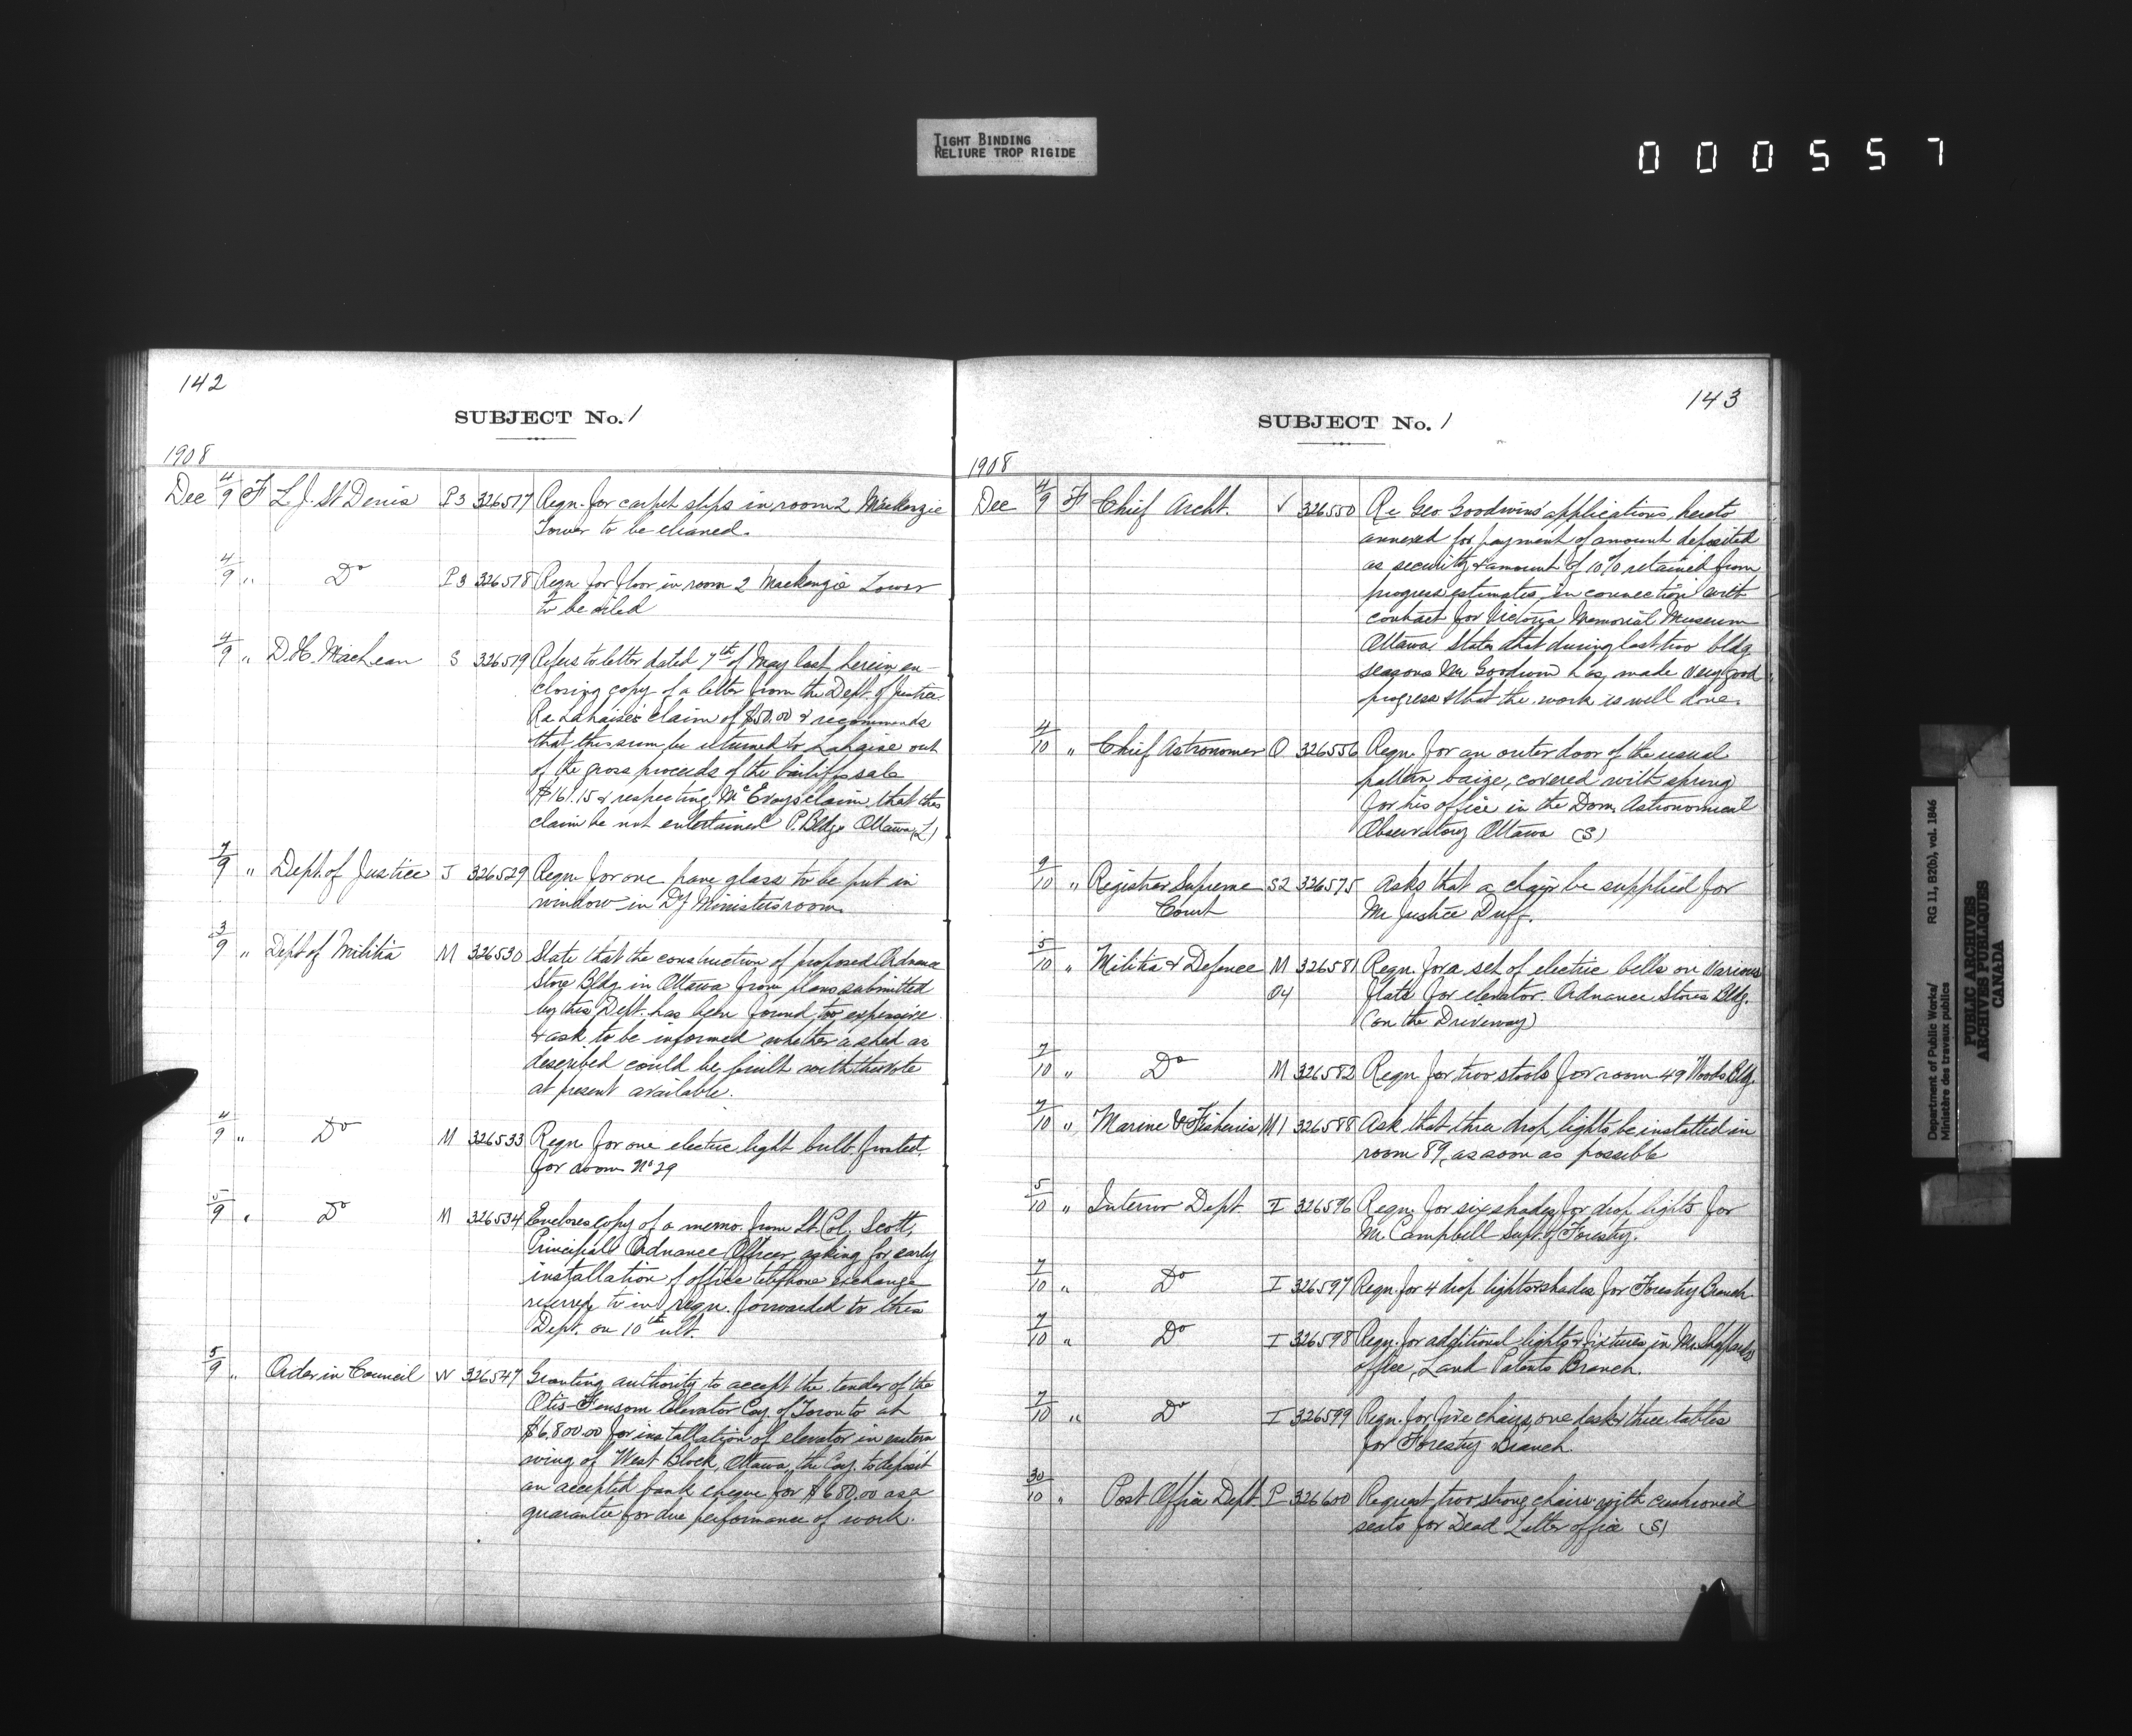 TIGHT BINDING
RELIURE TROP RIGIDE
000557
142
SUBJECT No. 1
1908
Dec 4/9 F L. J. St Denis P3 326517 Reqn. for carpet strips in room 2 Mackenzie
Tower to be cleaned.
4/9 " Do P3 326518 Reqn for floor in room 2 Mackenzie Tower
to be oiled
4/9 " D. H. MacLean S 326519 Refers to letter dated 7th of May last herein, en-
closing copy of a letter from the Dept. of Justice
Re Lahaise's claim of $50.00 & recommends
that this sum be returned to Lahaise out
of the gross proceeds of the bailiffs sale
$161.15 & respecting McEvoys claim, that this
claim be not entertained P. Bldgs Ottawa (L)
7/9 " Dept. of Justice J 326529 Reqn for one pane glass to be put in
window in Dy Ministers room.
3/9 " Dept of Militia M 326530 State that the construction of proposed Ordnance
Store Bldg. in Ottawa from plans submitted
by this Dept. has been found too expensive
& ask to be informed whether a shed as
described could be built with the vote
at present available.
4/9 " Do M 326533 Reqn for one electric light bulb frosted,
for room No 29
5/9 " Do M 326534 Encloses copy of a memo. from Lt. Col. Scott,
Principal Ordnance Officer, asking for early
installation of office telephone exchange
referred to in reqn. forwarded to this
Dept. on 10th ult.
5/9 " Order in Council W 326547 Granting authority to accept the tender of the
Otis-Fensom Elevator Coy. of Toronto at
$6.800.00 for installation of elevator in eastern
wing of West Block, Ottawa, the Coy. to deposit
an accepted bank cheque for $680.00 as a
guarantee for due performance of work.
143
SUBJECT No. 1
1908
Dec 4/9 F Chief Archt. V 326550 Re Geo Goodwins' applications, hereto
annexed for payment of amount deposited
as security & amount of 10% retained from
progress estimates, in connection with
contract for Victoria Memorial Museum
Ottawa, States that during last two bldg
seasons Mr Goodwin has made very good
progress & that the work is well done.
4/10 " Chief Astronomer O 326556 Reqn. for an outer door of the usual
pattern baize, covered with spring
for his office in the Dom. Astronomical
Observatory Ottawa (S)
9/10 " Registrar Supreme S2 326575 Asks that a chair be supplied for
Court Mr Justice Duff.
5/10 " Militia & Defence M 326581 Reqn. for a set of electric bells on various
04 flats for elevator. Ordnance Stores Bldg.
(on the Driveway)
7/10 " Do M 326582 Reqn for two stools for room 49 Woods Bldg.
7/10 " Marine & Fisheries M1 326588 Ask that three drop lights be installed in
room 89, as soon as possible
5/10 " Interior Dept. I 326596 Reqn. for six shades for drop lights for
Mr. Campbell Supt. of Forestry.
7/10 " Do I 326597 Reqn. for 4 drop lights & shades for Forestry Branch
7/10 " Do I 326598 Reqn. for additional lights & fixtures in Mr. Sheppards
office, Land Patents Branch.
7/10 " Do I 326599 Reqn. for five chairs, one desk & three tables
for Forestry Branch.
30/10 " Post Office Dept. P 326600 Request two strong chairs with cushioned
seats for Dead Letter office (S)
Department of Public Works/ RG 11, B2(b), vol. 1846
Ministère des travaux publics
PUBLIC ARCHIVES
ARCHIVES PUBLIQUES
CANADA